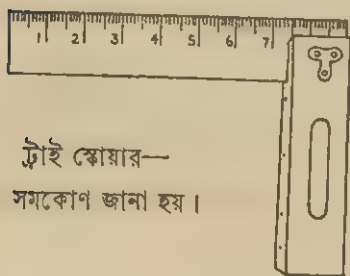 1 2 3 4 5 6 7
ট্রাই স্কোয়ার—
সমকোণ জানা হয়।